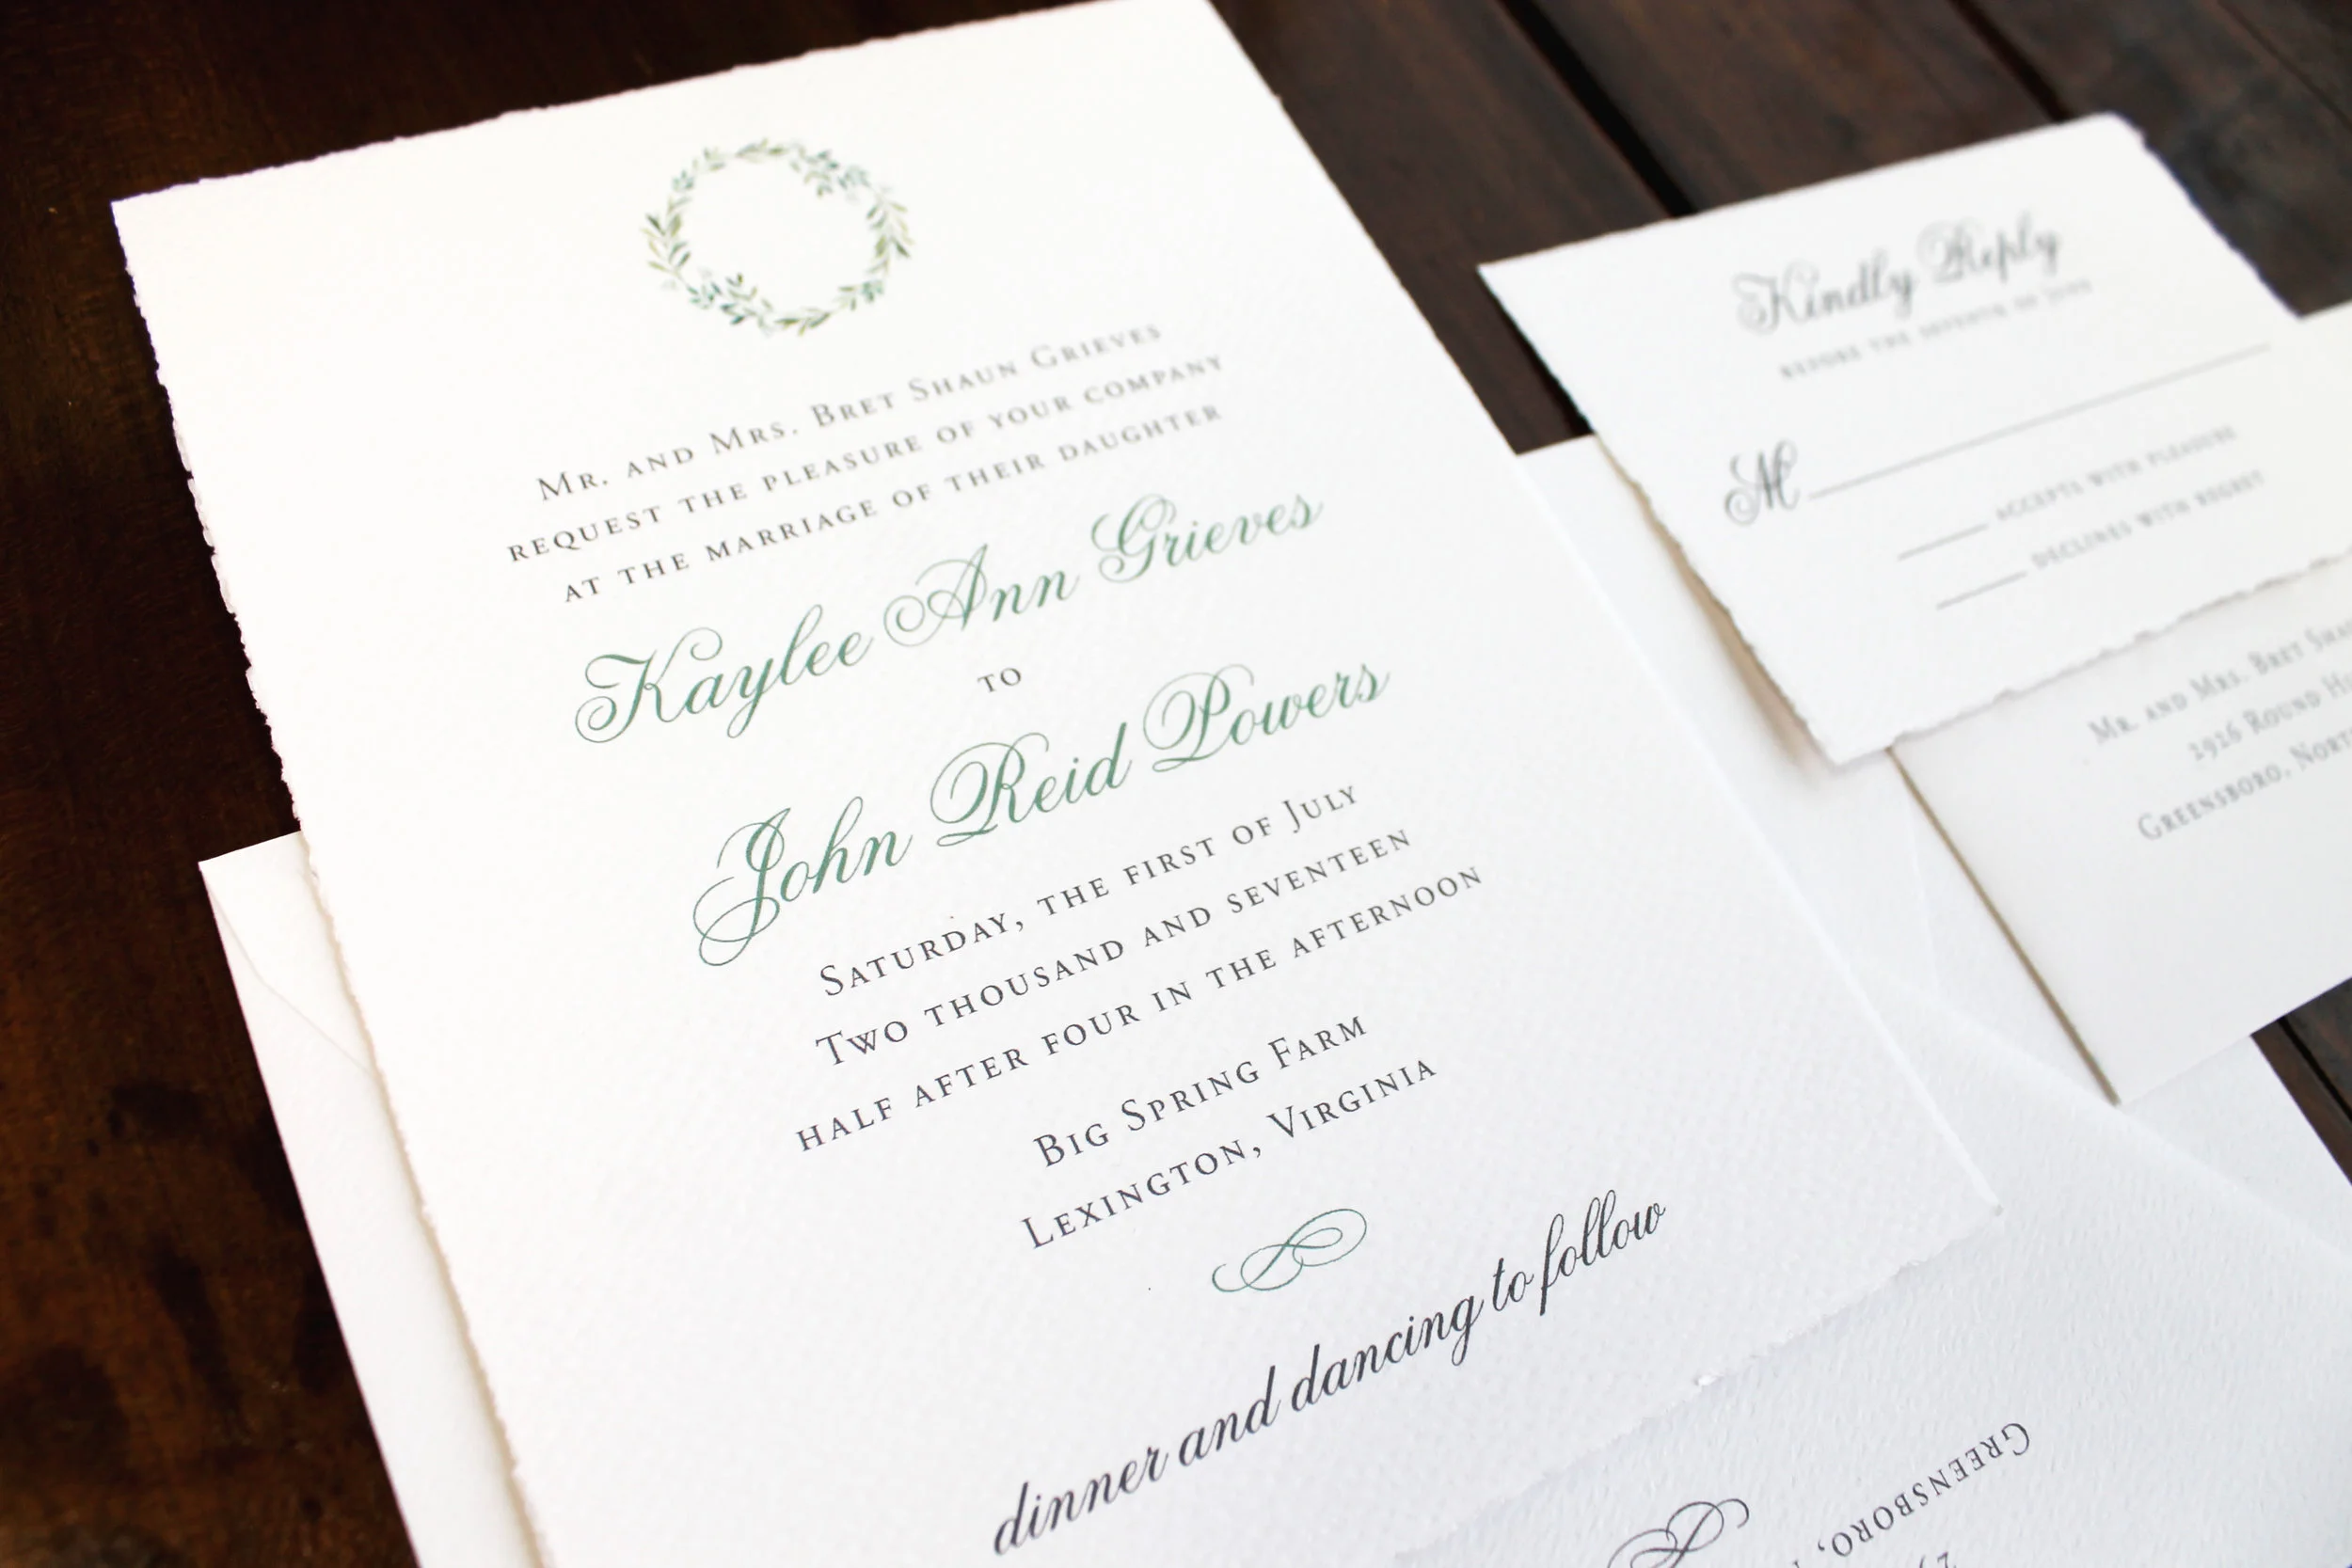 Mr. and Mrs. Bret Shaun Grieves
request the pleasure of your company
at the marriage of their daughter
Kaylee Ann Grieves
to
John Reid Powers
Saturday, the first of July
Two thousand and seventeen
half after four in the afternoon
Big Spring Farm
Lexington, Virginia
dinner and dancing to follow
Kindly Reply
before the seventh of June
M
accepts with pleasure
declines with regret
Mr. and Mrs. Bret
1926 Round
Greensboro,
Greensboro,